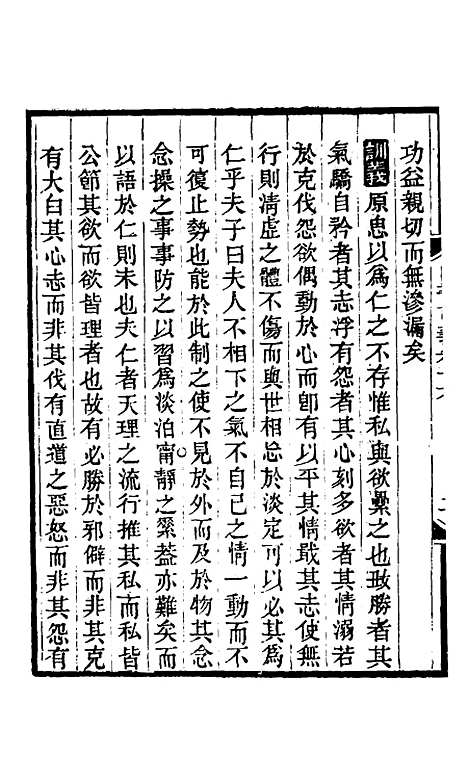 功益親切而無滲漏矣
訓義原思以爲仁之不存惟私與欲纍之也故勝者其
氣驕自矜者其志浮有怨者其心刻多欲者其情溺若
於克伐怨欲偶動於心而卽有以平其情戢其志使無
行則淸虛之體不傷而與世相忘於淡定可以必其爲
仁乎夫子曰夫人不相下之氣不自己之情一動而不
可復止勢也能於此制之使不見於外而及於物其念
念操之事事防之以習爲淡泊甯靜之㮣葢亦難矣而
以語於仁則未也夫仁者天理之流行推其私而私皆
公節其欲而欲皆理者也故有必勝於邪僻而非其克
有大白其心志而非其伐有直道之惡怒而非其怨有